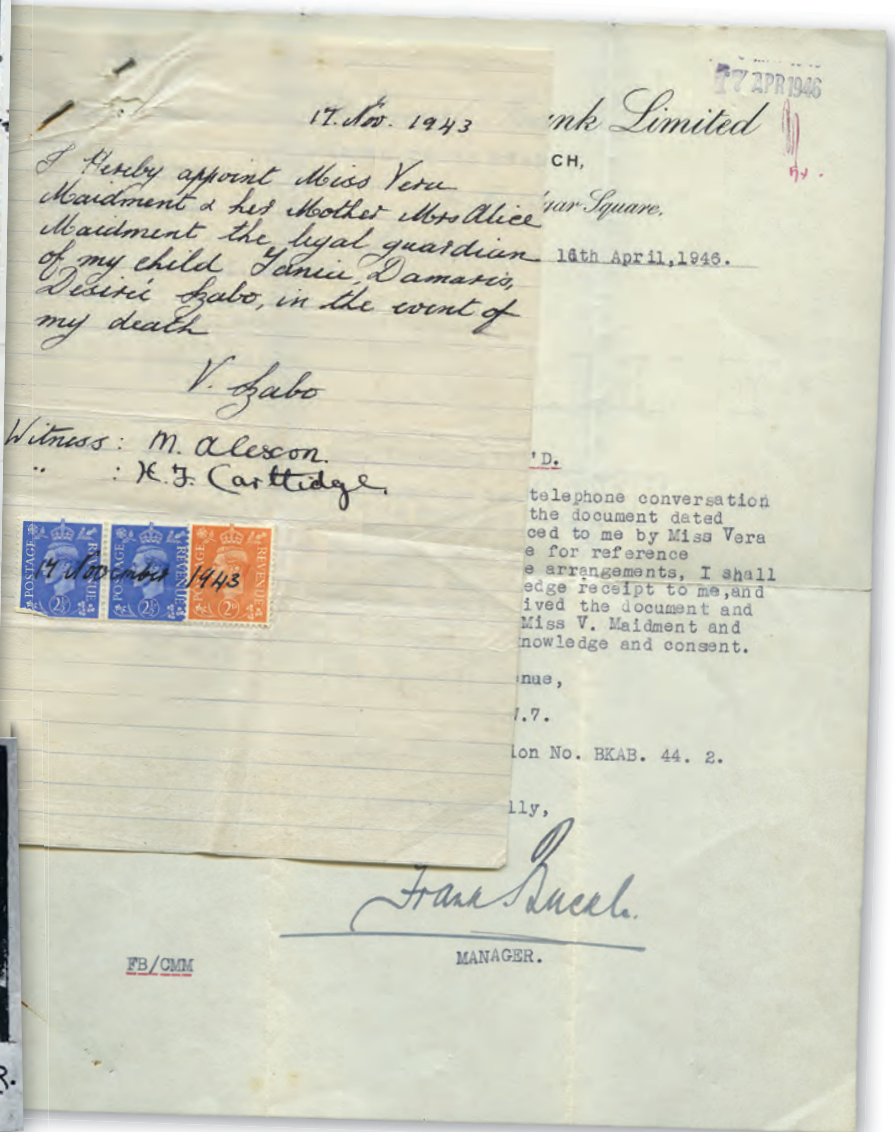 17. Nov. 1943
I Hereby appoint Miss Vera
Maidment & her Mother Mrs Alice
Maidment the legal guardian
of my child Tania, Damaris,
Desireé Szabo, in the event of
my death
V. Szabo
Witness: M. Alexcon.
" : H.F. Carttidge.
POSTAGE REVENUE 2½D
POSTAGE REVENUE 2½D
POSTAGE REVENUE 2D
17 November, 1943
17 APR 1946
nk Limited
CH,
gar Square,
16th April, 1946.
'D.
telephone conversation
the document dated
ced to me by Miss Vera
e for reference
e arrangements, I shall
edge receipt to me, and
ived the document and
Miss V. Maidment and
nowledge and consent.
nue,
.7.
ion No. BKAB. 44. 2.
lly,
Frank
MANAGER.
FB/CMM
R.